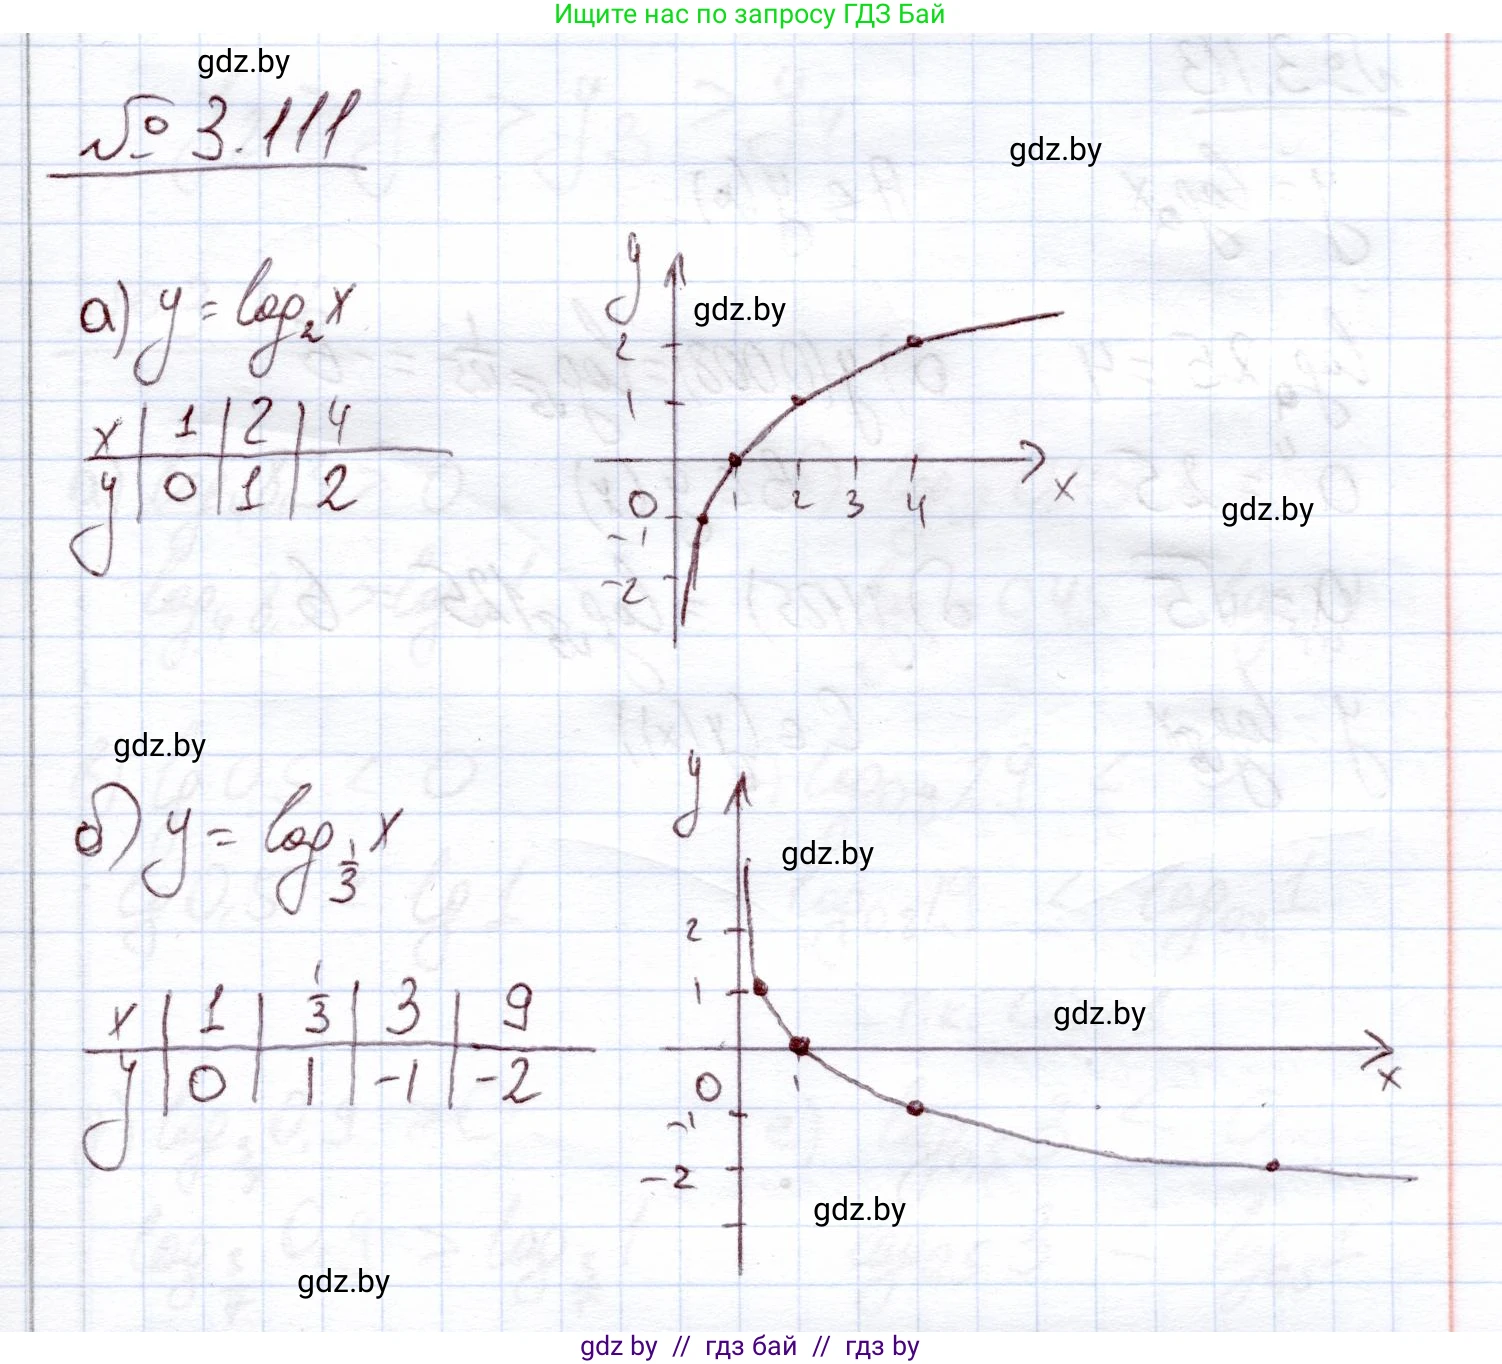 Ищите нас по запросу ГДЗ Бай
gdz.by
№ 3.111
gdz.by
а) y = log₂x
y
gdz.by
2
1
x | 1 | 2 | 4
y | 0 | 1 | 2
0 1 2 3 4 x
-1
-2
gdz.by
gdz.by
y
б) y = log_{1/3} x
gdz.by
2
1
x | 1 | 1/3 | 3 | 9
y | 0 | 1 | -1 | -2
gdz.by
0 1 x
-1
-2
gdz.by
gdz.by
gdz by // гдз бай // гдз by